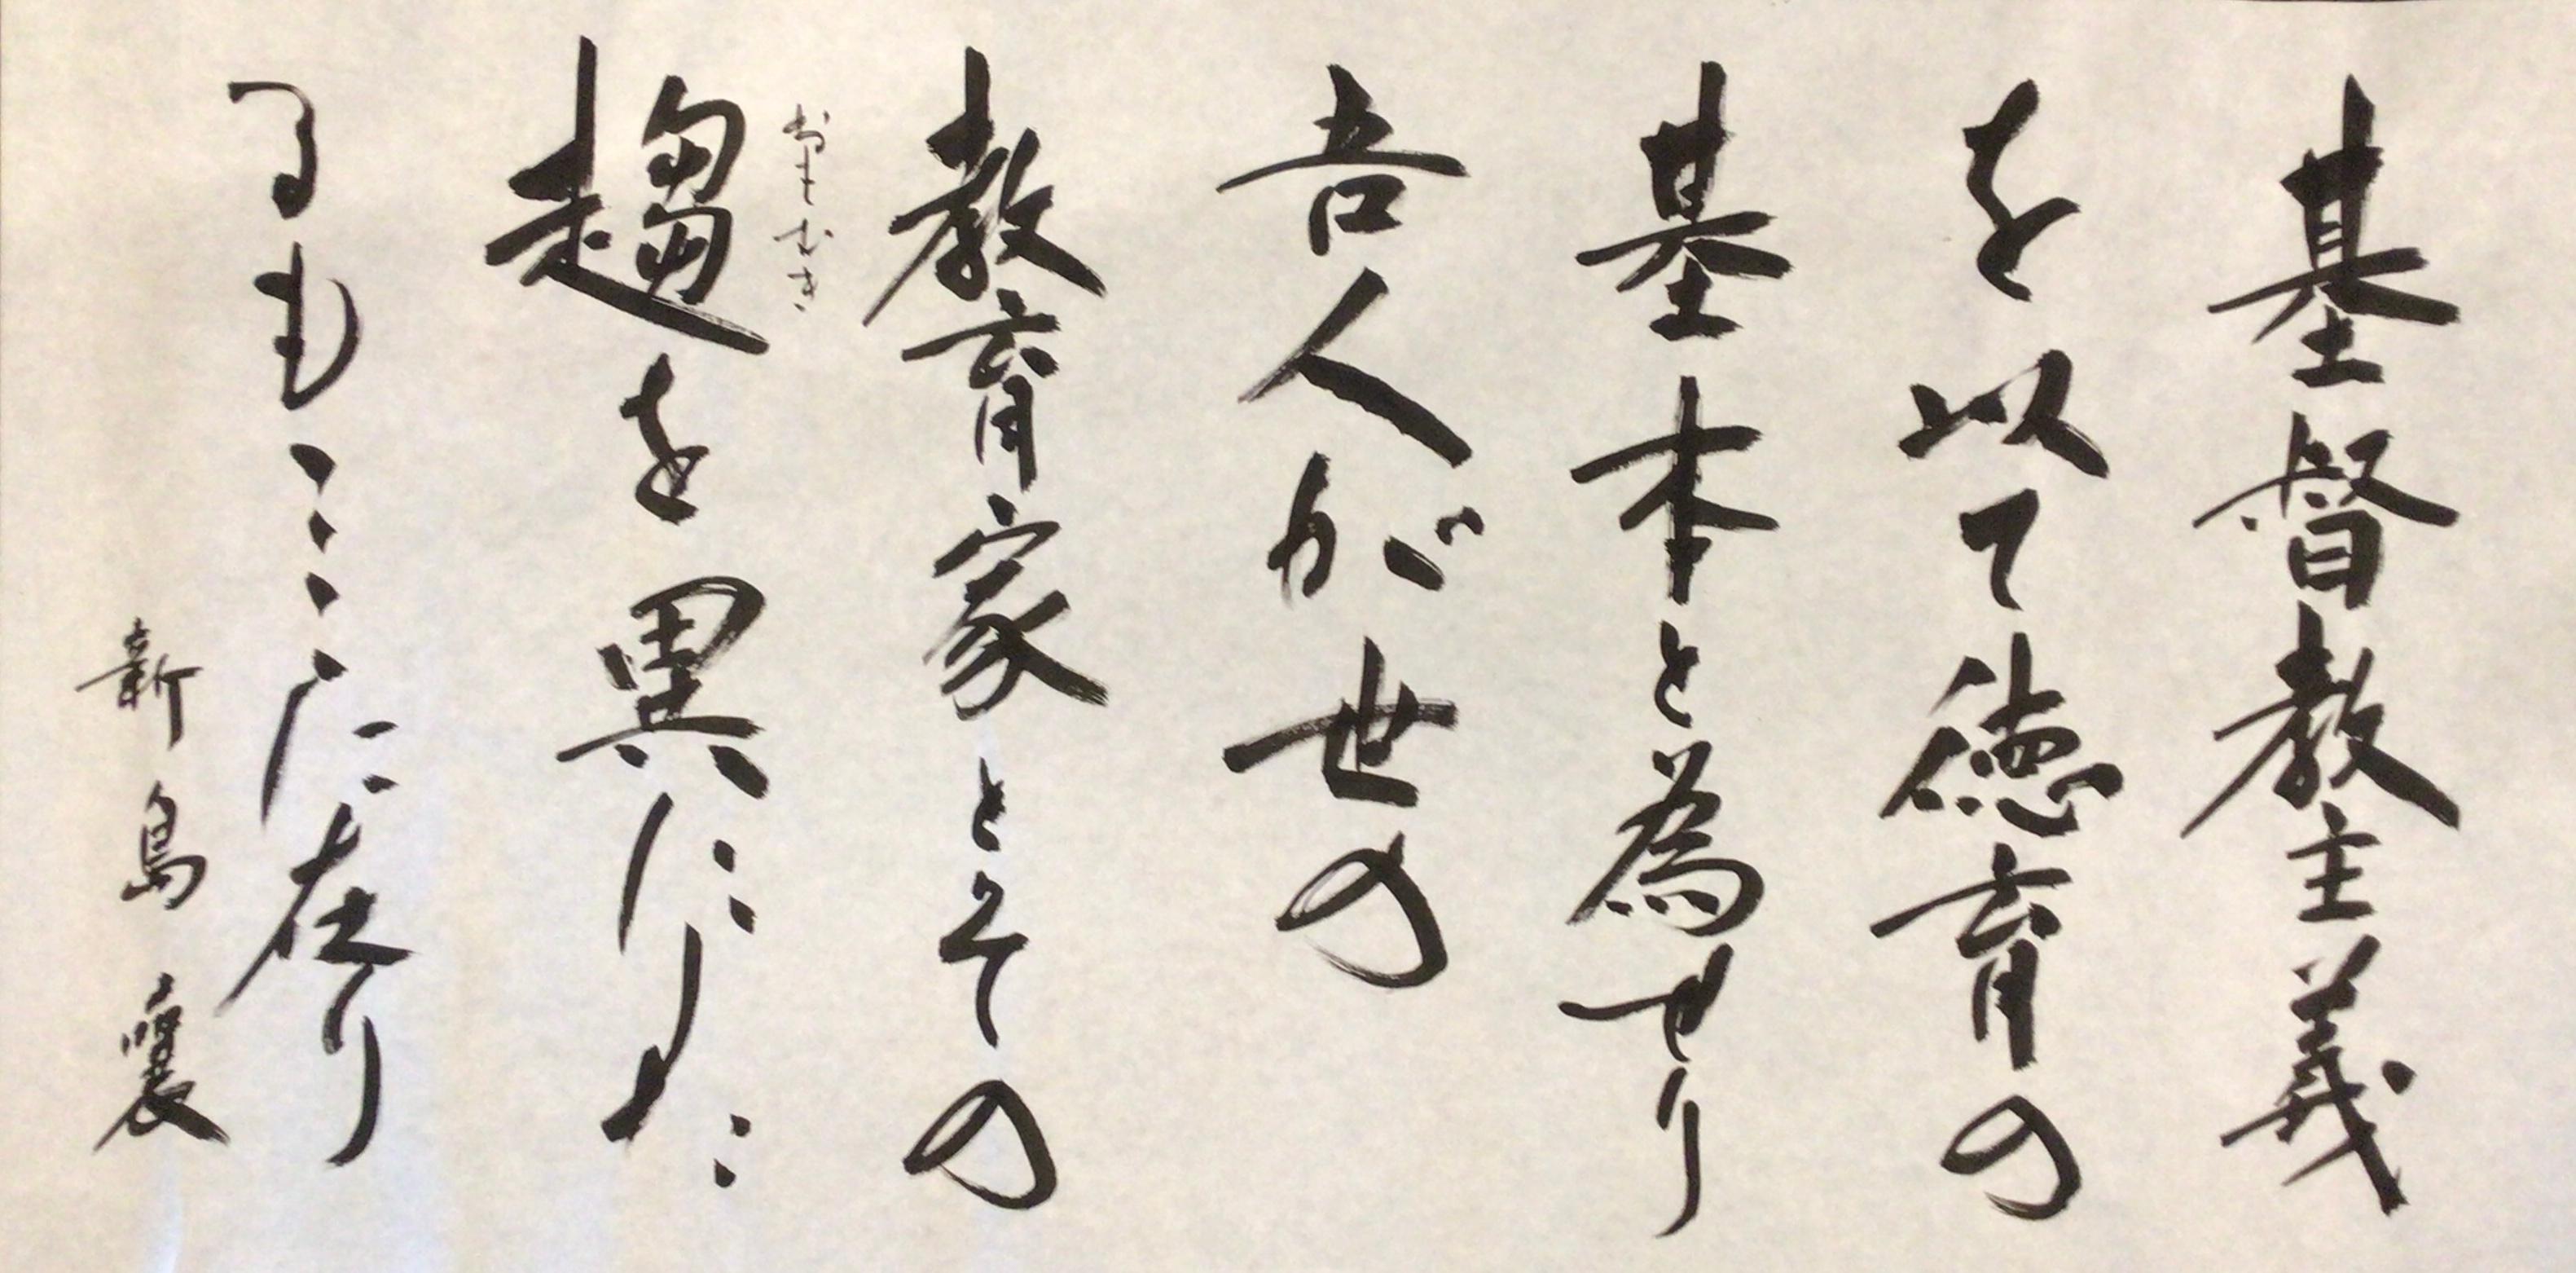 基督教主義
を以て徳育の
基本と為せり
吾人が世の
教育家とその
おもむき
趨を異にした
るもここに在り
新島襄